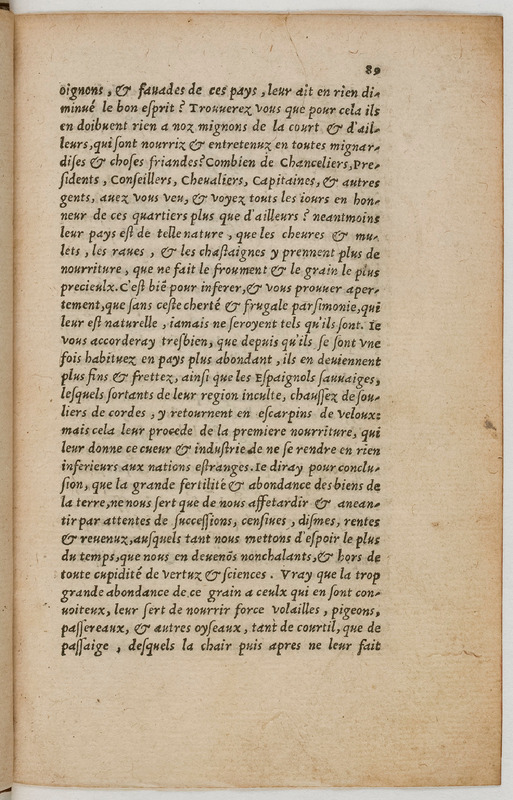 89
oignons, & fauades de ces pays, leur ait en rien di-
minué le bon esprit? Trouuerez vous que pour cela ils
en doibuent rien a noz mignons de la court & d'ail-
leurs, qui sont nourriz & entretenuz en toutes mignar-
dises & choses friandes? Combien de Chanceliers, Pre-
sidents, Conseillers, Cheualiers, Capitaines, & autres
gents, auez vous veu, & voyez touts les iours en hon-
neur de ces quartiers plus que d'ailleurs? neantmoins
leur pays est de telle nature, que les cheures & mu-
lets, les raues, & les chastaignes y prennent plus de
nourriture, que ne fait le froument & le grain le plus
precieulx. C'est biē pour inferer, & vous prouuer aper-
tement, que sans ceste cherté & frugale parsimonie, qui
leur est naturelle, iamais ne seroyent tels qu'ils sont. Ie
vous accorderay tresbien, que depuis qu'ils se sont vne
fois habituez en pays plus abondant, ils en deuiennent
plus fins & frettez, ainsi que les Espaignols sauuaiges,
lesquels sortants de leur region inculte, chaussez de sou-
liers de cordes, y retournent en escarpins de veloux:
mais cela leur procede de la premiere nourriture, qui
leur donne ce cueur & industrie de ne se rendre en rien
inferieurs aux nations estranges. Ie diray pour conclu-
sion, que la grande fertilité & abondance des biens de
la terre, ne nous sert que de nous affetardir & anean-
tir par attentes de successions, censiues, dismes, rentes
& reuenuz, ausquels tant nous mettons d'espoir le plus
du temps, que nous en deuenōs nonchalants, & hors de
toute cupidité de vertuz & sciences. Vray que la trop
grande abondance de ce grain a ceulx qui en sont con-
uoiteux, leur sert de nourrir force volailles, pigeons,
passereaux, & autres oyseaux, tant de courtil, que de
passaige, desquels la chair puis apres ne leur fait